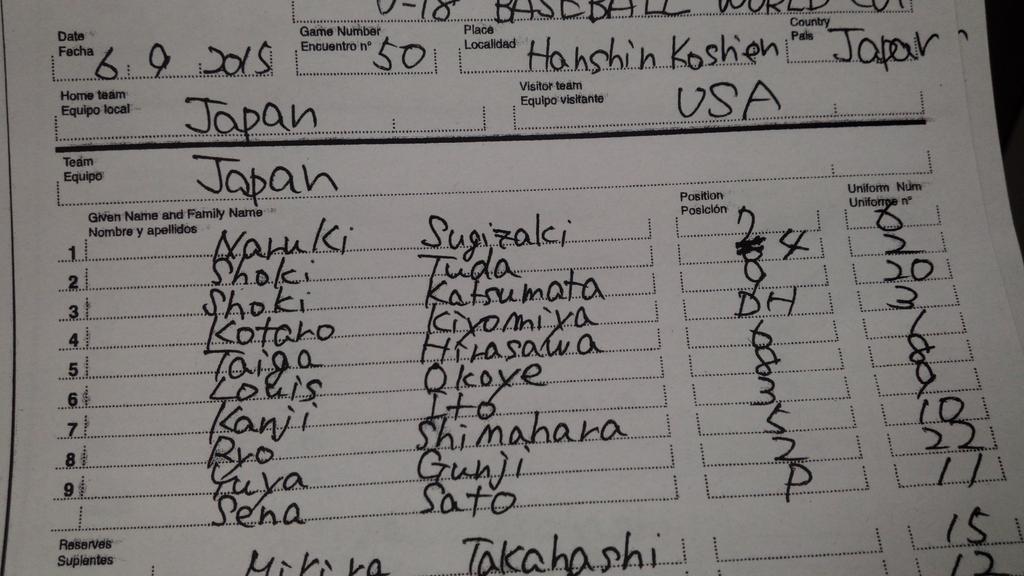 U-18 BASEBALL WORLD CUP
Date Fecha 6 9 2015 Game Number Encuentro nº 50 Place Localidad Hanshin Koshien Country País Japan
Home team Equipo local Japan Visitor team Equipo visitante USA
Team Equipo Japan
Given Name and Family Name Nombre y apellidos Position Posición Uniform Num Uniforme nº
1 Naruki Sugizaki 7 8
2 Shoki Tuda 4 2
3 Shoki Katsumata 9 20
4 Kotaro Kiyomiya DH 3
5 Taiga Hirasawa 6 1
6 Louis Okoye 8 8
7 Kanji Ito 3 9
8 Ryo Shimahara 5 10
9 Yuya Gunji 2 22
Sena Sato P 11
Reserves Suplentes Takahashi 15
12